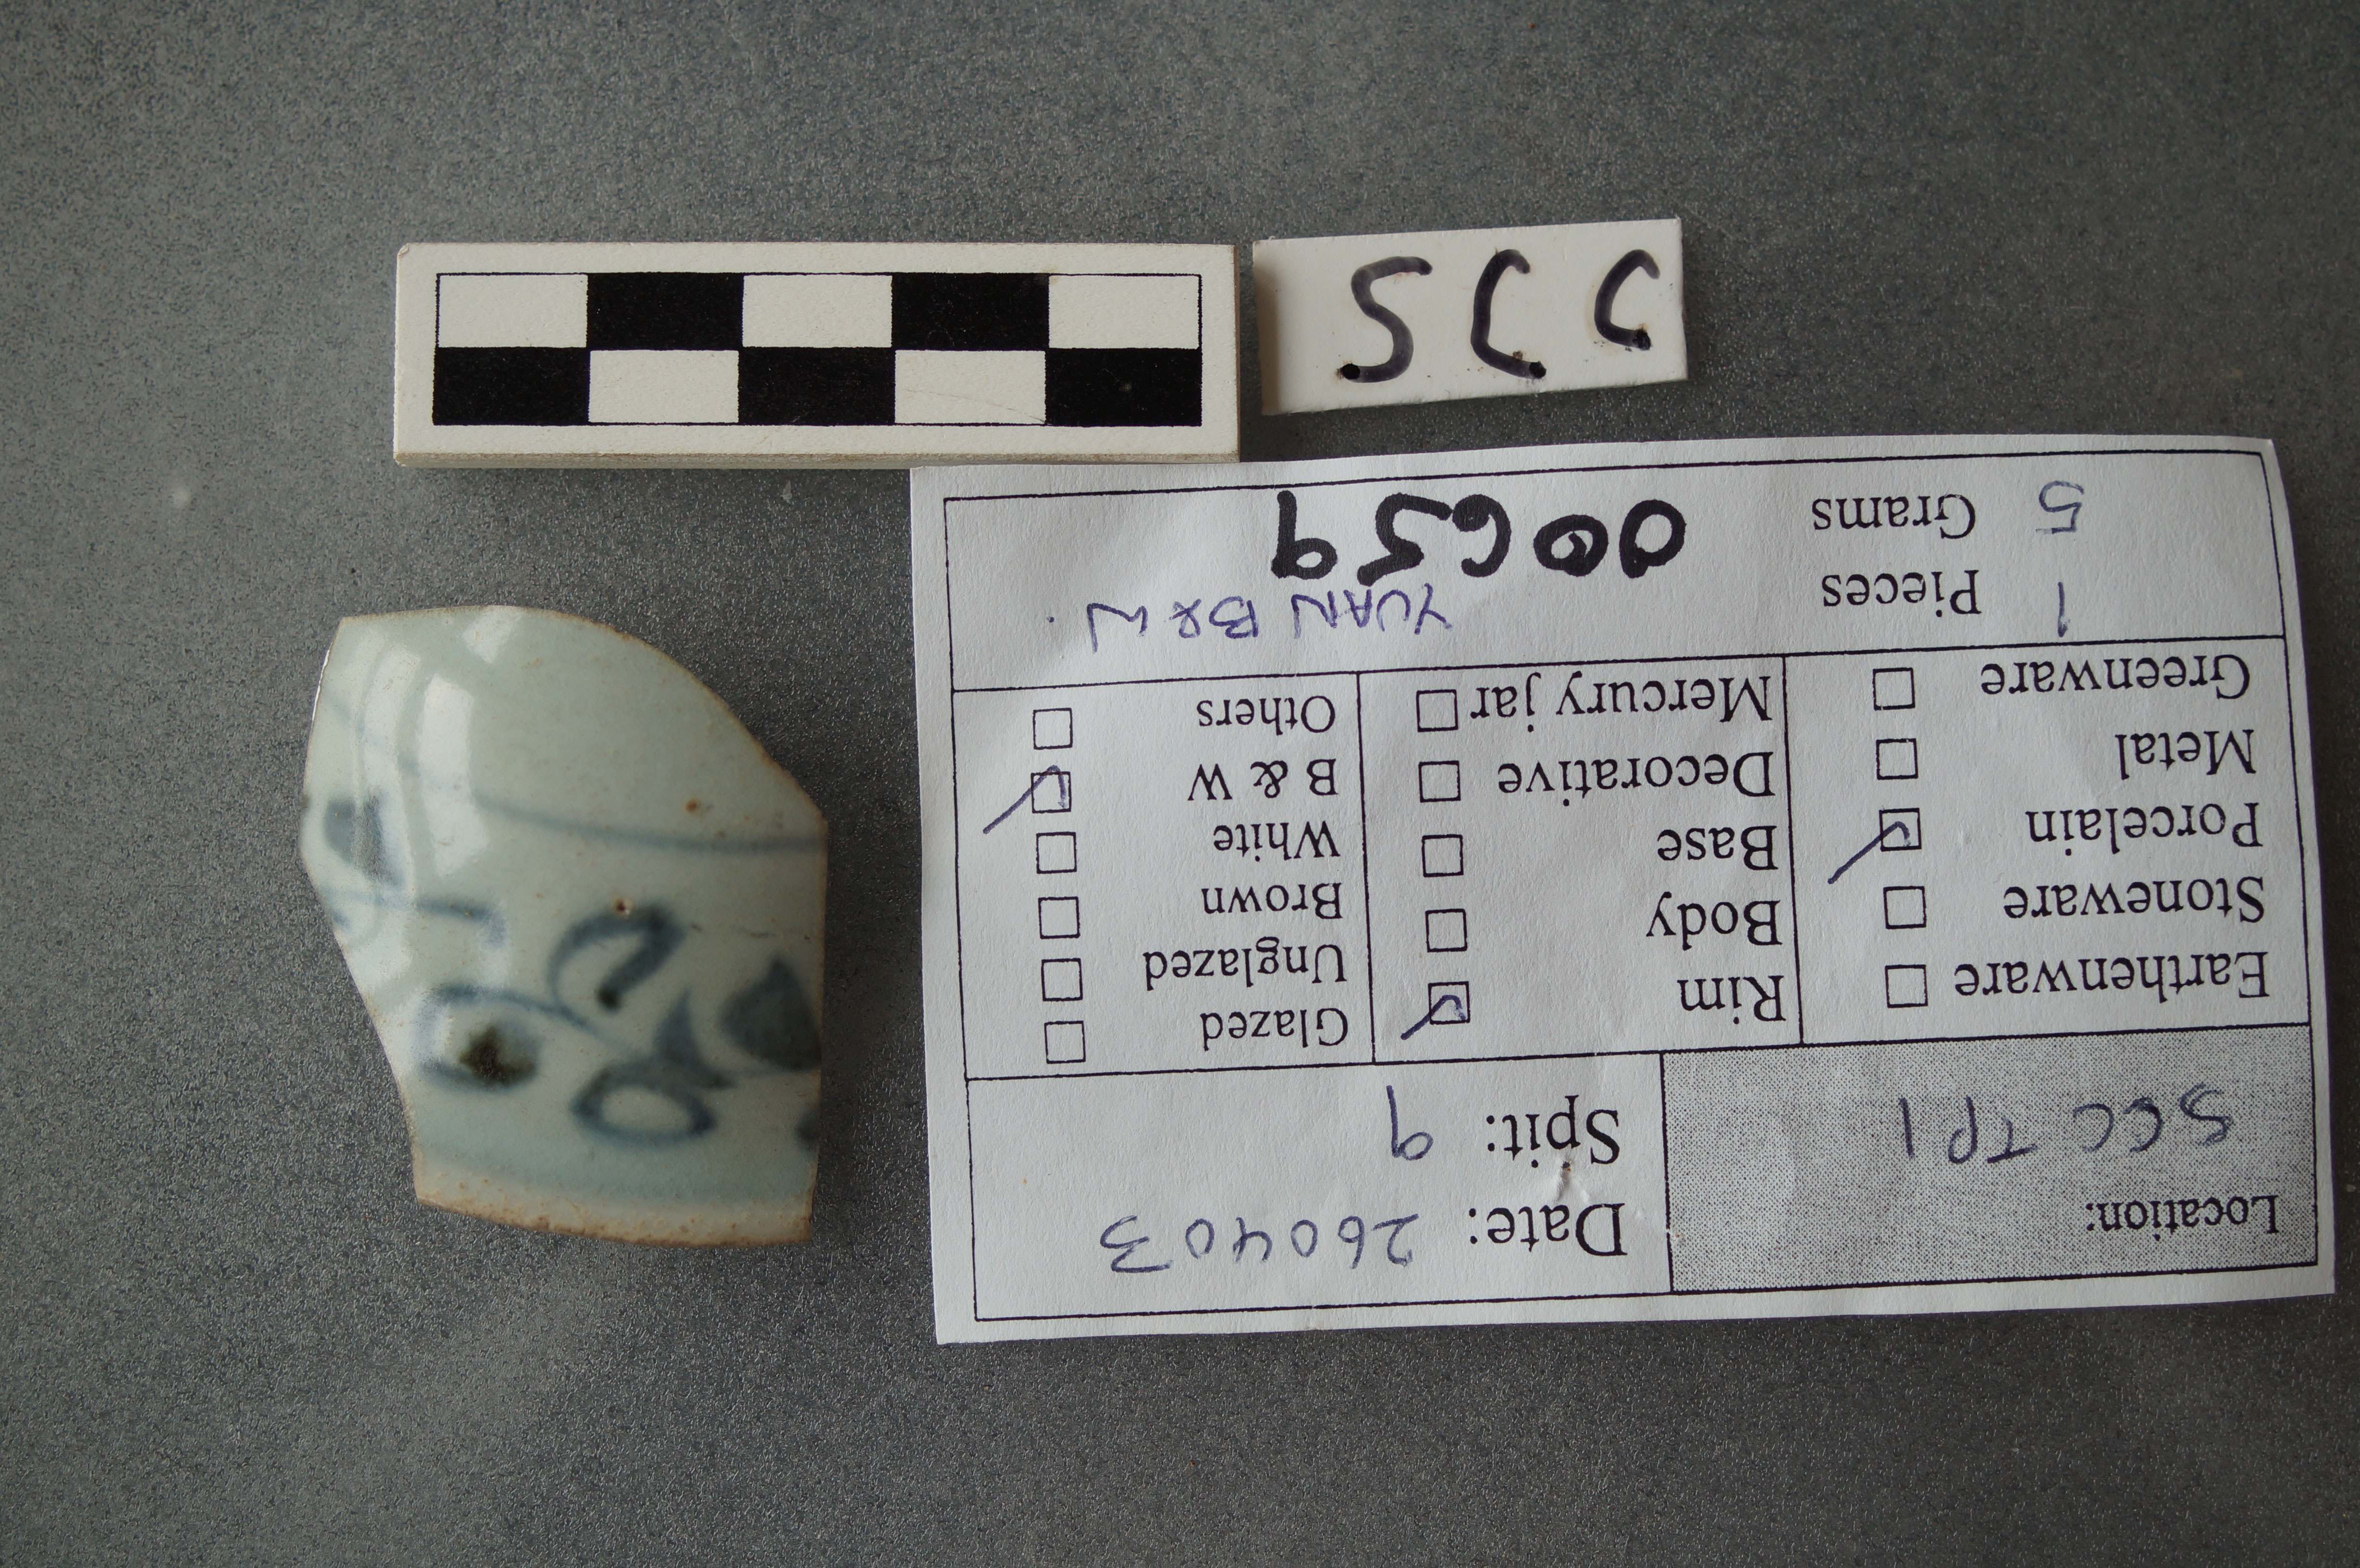 SCC
Location:
SCC TP1
Date: 260403
Spit: 9
Earthenware
Stoneware
Porcelain
Metal
Greenware
Rim
Body
Base
Decorative
Mercury jar
Glazed
Unglazed
Brown
White
B & W
Others
1 Pieces
5 Grams
YUAN B&W.
00659